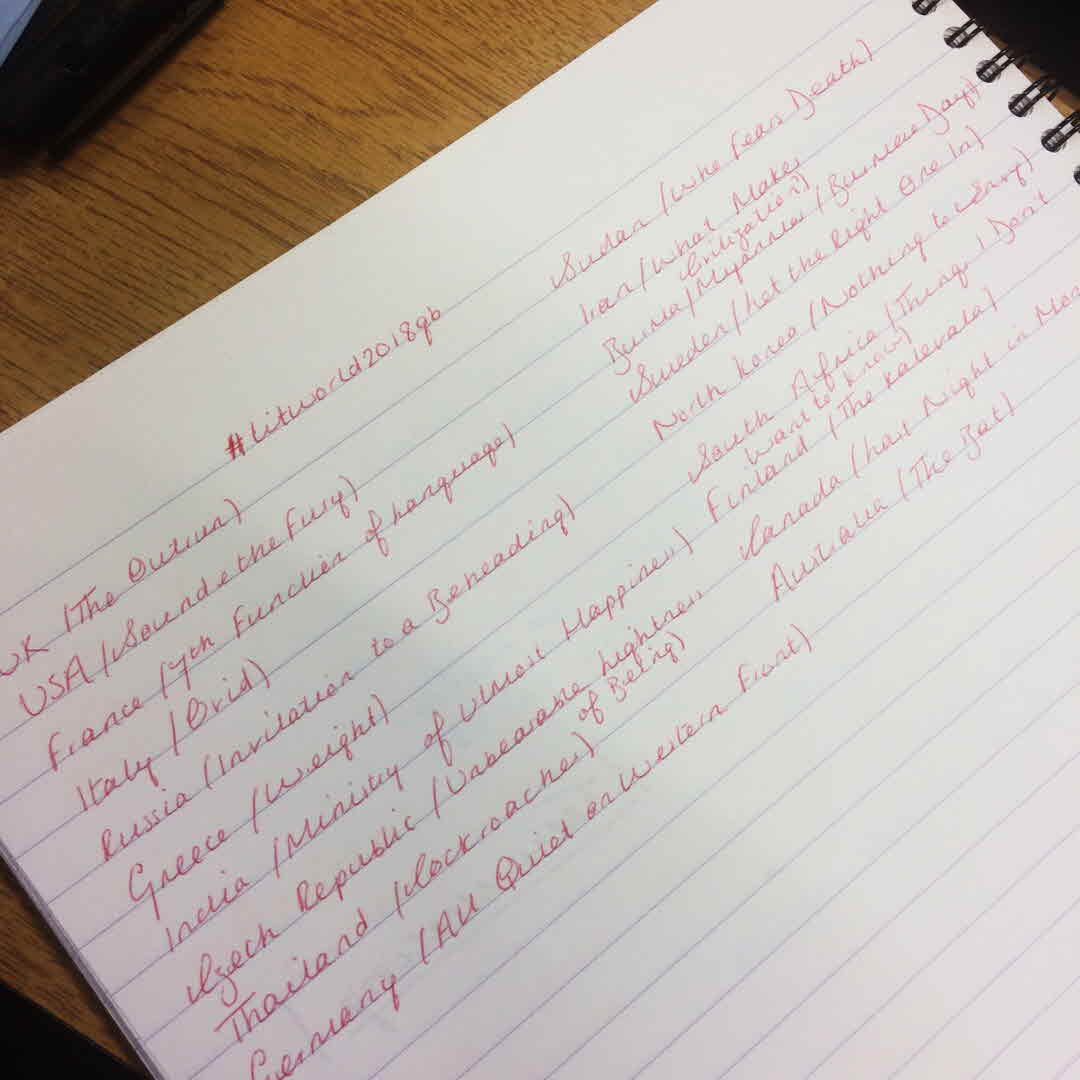 #litworld2018gb
UK (The Outrun)
USA (Sound & the Fury)
France (7th Function of Language)
Italy (Ovid)
Russia (Invitation to a Beheading)
Greece (Weight)
India (Ministry of Utmost Happiness)
Czech Republic (Unbearable Lightness
of Being)
Thailand (Cockroaches)
Germany (All Quiet on Western Front)
Sudan (Who Fears Death)
Iran (What Makes
Civilization?)
Burma/Myanmar (Burmese Days)
Sweden (Let the Right One In)
North Korea (Nothing to Envy)
South Africa (Things I Don't
Want to Know)
Finland (The Kalevala)
Canada (Last Night in
Australia (The Bat)